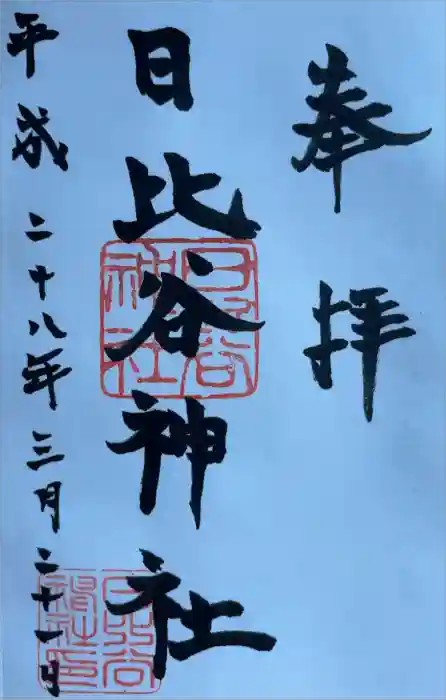 奉拝
日比谷神社
平成二十八年三月二十一日
日比谷神社